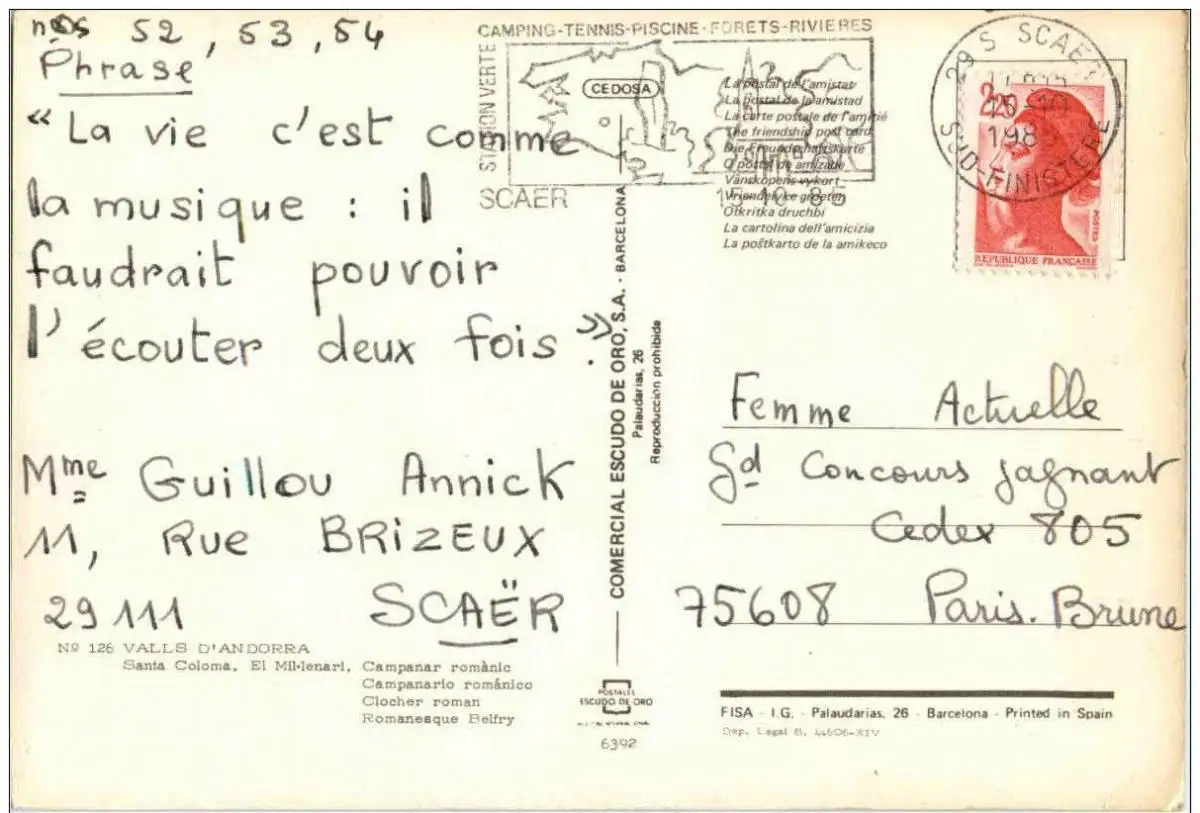 nos 52, 53, 54
Phrase
« La vie c'est comme
la musique : il
faudrait pouvoir
l'écouter deux fois ».
Mme Guillou Annick
11, Rue BRIZEUX
29111 SCAËR
Nº 126 VALLS D'ANDORRA
Santa Coloma. El Mil·lenari. Campanar romànic
Campanario románico
Clocher roman
Romanesque Belfry
CAMPING-TENNIS-PISCINE-FORETS-RIVIERES
STATION VERTE
CEDOSA
SCAER 15-10-85
La postal de l'amistat
La postal de la amistad
La carte postale de l'amitié
The friendship post card
Die Freundschaftskarte
O postal de amizade
Vänskapens vykort
Vriendelyke groeten
Otkritka druchbi
La cartolina dell'amicizia
La poŝtkarto de la amikeco
29 S SCAER
15-10
198
SUD-FINISTERE
2,20
POSTES
REPUBLIQUE FRANÇAISE
COMERCIAL ESCUDO DE ORO, S.A. - BARCELONA
Palaudarias, 26
Reproduccion prohibida
Femme Actuelle
Gd Concours gagnant
Cedex 805
75608 Paris. Brune
POSTALES
ESCUDO DE ORO
6392
FISA - I.G. - Palaudarias, 26 - Barcelona - Printed in Spain
Dep. Legal B. 44606-XIV